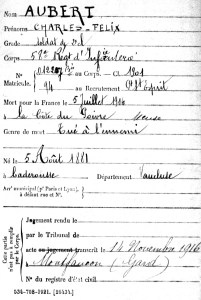 Nom AUBERT
Prénoms CHARLES-FELIX
Grade soldat de 2e cl
Corps 58e Régt d'Infanterie
N° 01220 au Corps. — Cl
Matricule. 94 au Recrutement Pt St Esprit
Mort pour la France le 5 juillet 1916
à la Côte du Poivre Meuse
Genre de mort Tué à l'ennemi
Né le 5 Août 1881
à Caderousse Département Vaucluse
Arrt municipal (pr Paris et Lyon),
à défaut rue et N°.
Cette partie n'est pas à remplir par le Corps.
Jugement rendu le
par le Tribunal de
acte ou jugement transcrit le 14 Novembre 1916
à Montfaucon (Gard)
N° du registre d'état civil
534-708-1921. [26434.]